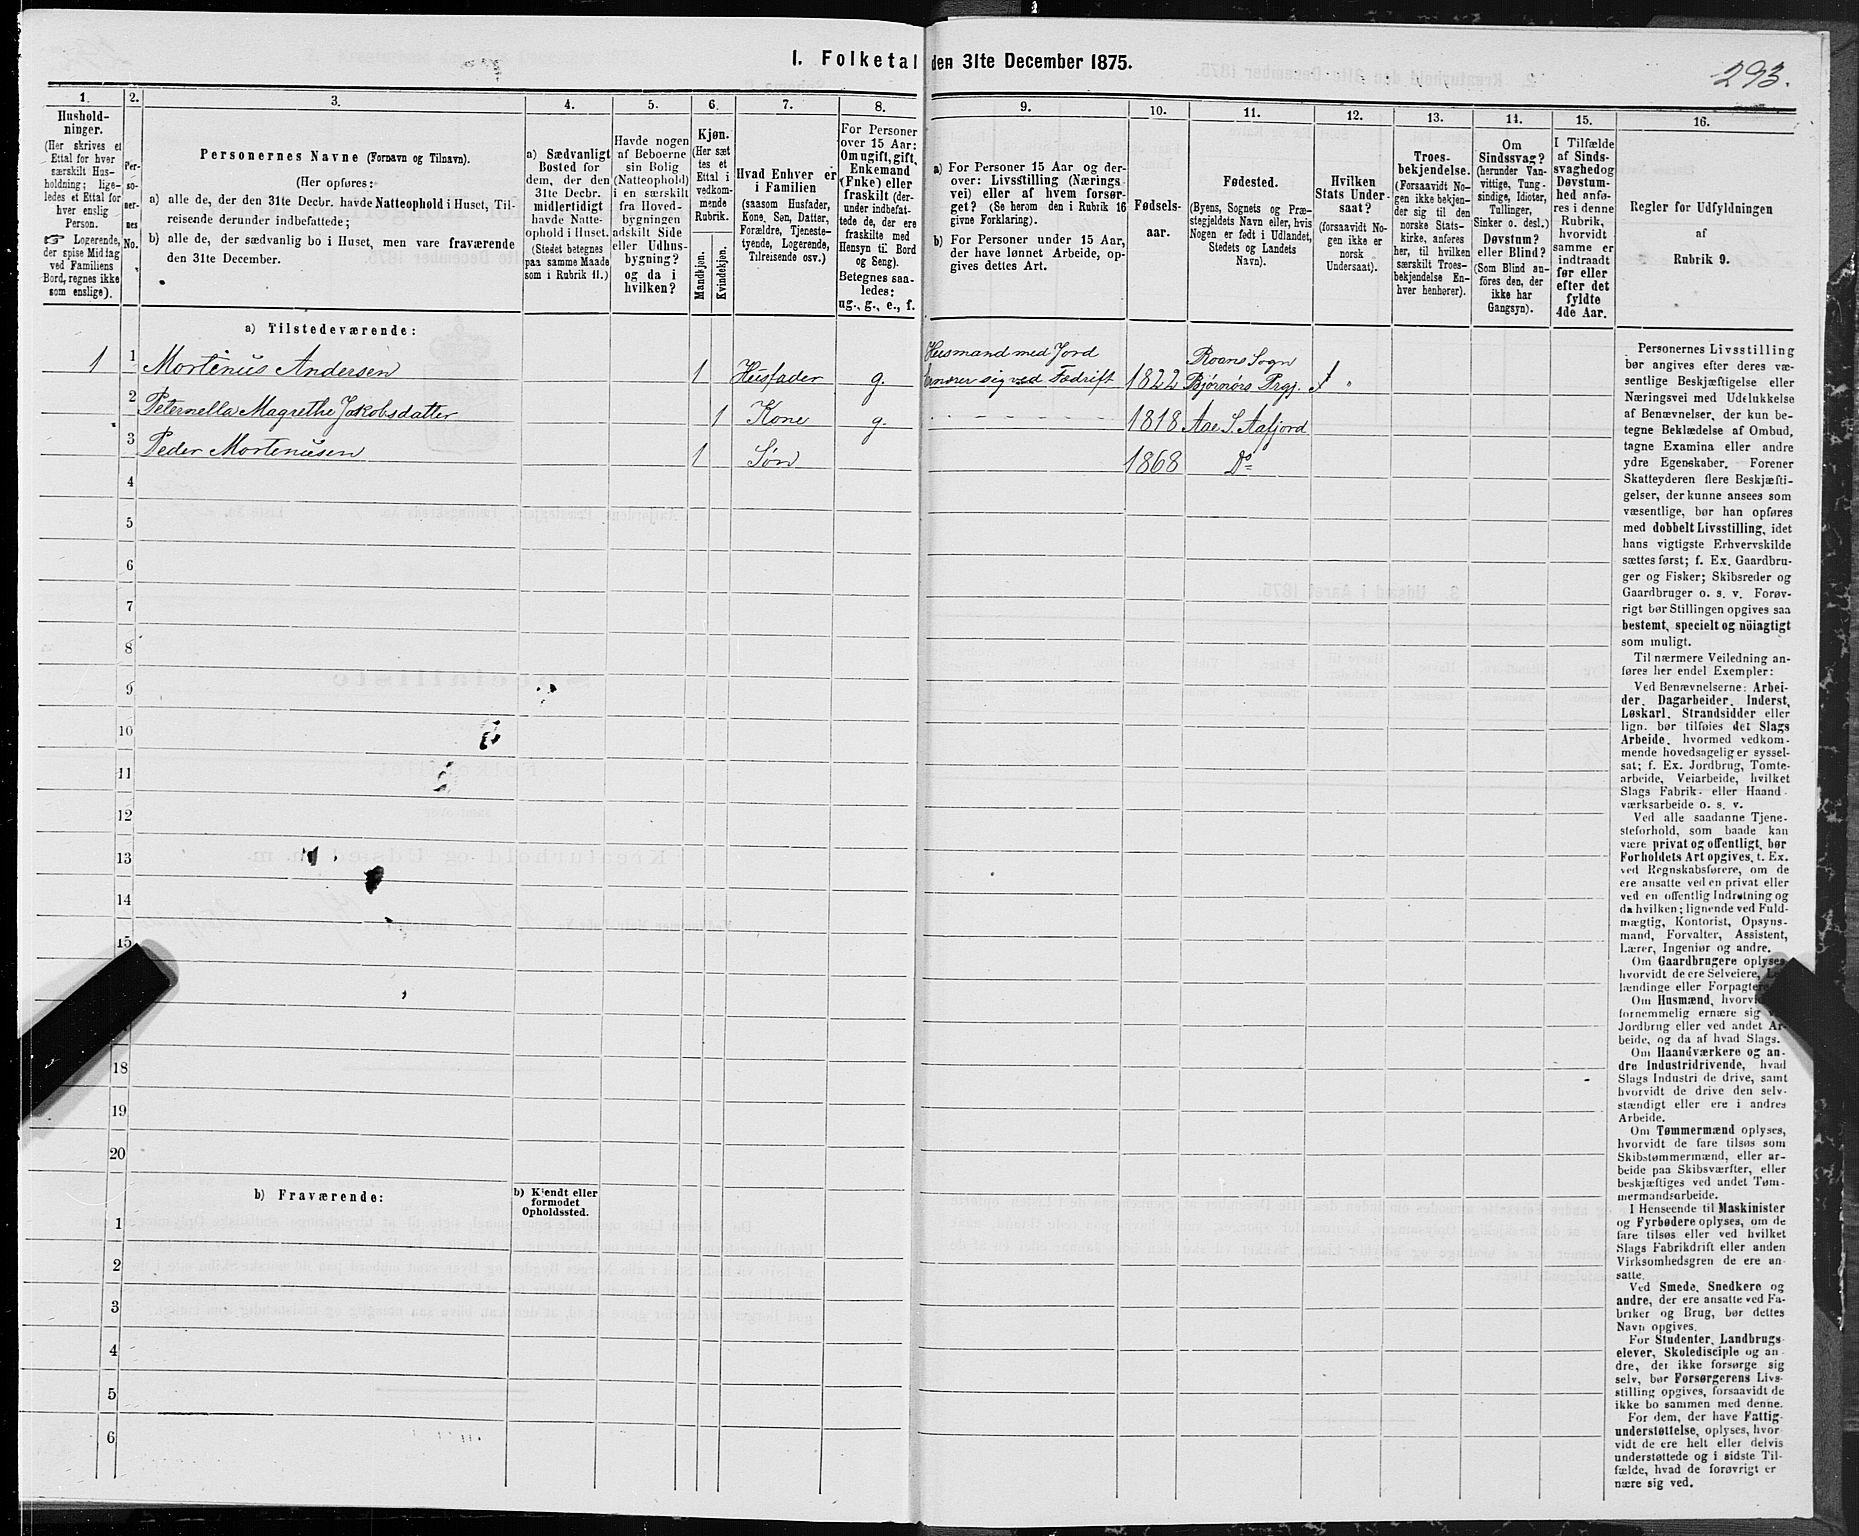 I. Folketal den 31te December 1875.
293.
1.
Husholdninger.
(Her skrives et
Ettal for hver
særskilt Husholdning; ligeledes et Ettal for
hver enslig
Person.
☞ Logerende,
der spise Middag
ved Familiens
Bord, regnes ikke
som enslige).
2.
Personernes
No.
3.
Personernes Navne (Fornavn og Tilnavn).
(Her opføres:
a) alle de, der den 31te Decbr. havde Natteophold i Huset, Tilreisende derunder indbefattede;
b) alle de, der sædvanlig bo i Huset, men vare fraværende
den 31te December.
4.
a) Sædvanligt
Bosted for
dem, der den
31te Decbr.
midlertidigt
havde Natteophold i Huset.
(Stedet betegnes
paa samme Maade
som i Rubrik 11.)
5.
Havde nogen
af Beboerne
sin Bolig
(Natteophold)
i en særskilt
fra Hovedbygningen
adskilt Side
eller Udhusbygning?
og da i
hvilken?
6.
Kjøn.
(Her sættes et
Ettal i
vedkommende
Rubrik.
Mandkjøn.
Kvindekjøn.
7.
Hvad Enhver er
i Familien
(saasom Husfader,
Kone, Søn, Datter,
Forældre, Tjenestetyende, Logerende,
Tilreisende osv.)
8.
For Personer
over 15 Aar:
Om ugift, gift,
Enkemand
(Enke) eller
fraskilt (derunder indbefattede de, der ere
fraskilte med
Hensyn til Bord
og Seng).
Betegnes saaledes:
ug., g., e., f.
9.
a) For Personer 15 Aar og derover: Livsstilling (Næringsvei) eller af hvem forsørget? (Se herom den i Rubrik 16
givne Forklaring).
b) For Personer under 15 Aar,
der have lønnet Arbeide, opgives dettes Art.
10.
Fødselsaar.
11.
Fødested.
(Byens, Sognets og Præstegjeldets Navn eller, hvis
Nogen er født i Udlandet,
Stedets og Landets
Navn).
12.
Hvilken
Stats Undersaat?
(forsaavidt Nogen ikke er
norsk
Undersaat).
13.
Troesbekjendelse.
(Forsaavidt Nogen ikke bekjender sig til den
norske Statskirke, anføres
her, til hvilken
særskilt Troesbekjendelse Enhver henhører).
14.
Om
Sindssvag?
(herunder Vanvittige, Tungsindige, Idioter,
Tullinger,
Sinker o. desl.)
Døvstum?
eller Blind?
(Som Blind anføres den, der
ikke har
Gangsyn).
15.
I Tilfælde
af Sindssvaghed og
Døvstumhed anføres i denne
Rubrik,
hvorvidt
samme er
indtraadt
før eller
efter det
fyldte
4de Aar.
16.
Regler for Udfyldningen
af
Rubrik 9.
a) Tilstedeværende:
1 1 Mortinus Andersen 1 Husfader g. Husmand med Jord
ernærer sig ved Fædrift 1822 Roans Sogn
Bjørnørs Prgj.
2 Peternella Magrethe Jakobsdatter 1 Kone g. 1818 Aae S. Aafjord
3 Peder Mortenusen 1 Søn 1868 Do
4
5
6
7
8
9
10
11
12
13
14
15
18
19
20
b) Fraværende:
b) Kjendt eller
formodet
Opholdssted.
1
2
3
4
5
6
Personernes Livsstilling
bør angives efter deres væsentlige Beskjæftigelse eller
Næringsvei med Udelukkelse
af Benævnelser, der kun betegne Beklædelse af Ombud,
tagne Examina eller andre
ydre Egenskaber. Forener
Skatteyderen flere Beskjæftigelser, der kunne ansees som
væsentlige, bør han opføres
med dobbelt Livsstilling, idet
hans vigtigste Erhvervskilde
sættes først; f. Ex. Gaardbruger og Fisker; Skibsreder og
Gaardbruger o. s. v. Forøvrigt bør Stillingen opgives saa
bestemt, specielt og nöiagtigt
som muligt.
Til nærmere Veiledning anføres her endel Exempler:
Ved Benævnelserne: Arbeider, Dagarbeider, Inderst,
Løskarl, Strandsidder eller
lign. bør tilføies det Slags
Arbeide, hvormed vedkommende hovedsagelig er sysselsat; f. Ex. Jordbrug, Tomtearbeide, Veiarbeide, hvilket
Slags Fabrik- eller Haandværksarbeide o. s. v.
Ved alle saadanne Tjenesteforhold, som baade kan
være privat og offentligt, bør
Forholdets Art opgives, f. Ex.
ved Regnskabsførere, om de
ere ansatte ved en privat eller
ved en offentlig Indretning og
da hvilken; lignende ved Fuldmægtig, Kontorist, Opsynsmand, Forvalter, Assistent,
Lærer, Ingeniør og andre.
Om Gaardbrugere oplyses,
hvorvidt de ere Selveiere,
lændinge eller
Om Husmænd,
fornemmelig ernære sig
Jordbrug eller ved andet Arbeide, og da af hvad Slags.
Om Haandværkere og andre Industridrivende, hvad
Slags Industri de drive, samt
hvorvidt de drive den selvstændigt eller ere i andres
Arbeide.
Om Tømmermænd oplyses,
hvorvidt de fare tilsøs som
Skibstømmermænd, eller arbeide paa Skibsværfter, eller
beskjæftiges ved andet Tømmermandsarbeide.
I Henseende til Maskinister
og Fyrbødere oplyses, om de
fare tilsøs eller ved hvilket
Slags Fabrikdrift eller anden
Virksomhedsgren de ere ansatte.
Ved Smede, Snedkere og
andre, der ere ansatte ved Fabriker og Brug, bør dettes
Navn opgives.
For Studenter, Landbrugselever, Skoledisciple og andre, der ikke forsørge sig
selv, bør Forsørgerens Livsstilling opgives, forsaavidt de
ikke bo sammen med denne.
For dem, der have Fattigunderstøttelse, oplyses, hvorvidt de ere helt eller delvis
understøttede og i sidste Tilfælde, hvad de forøvrigt ernære sig ved.